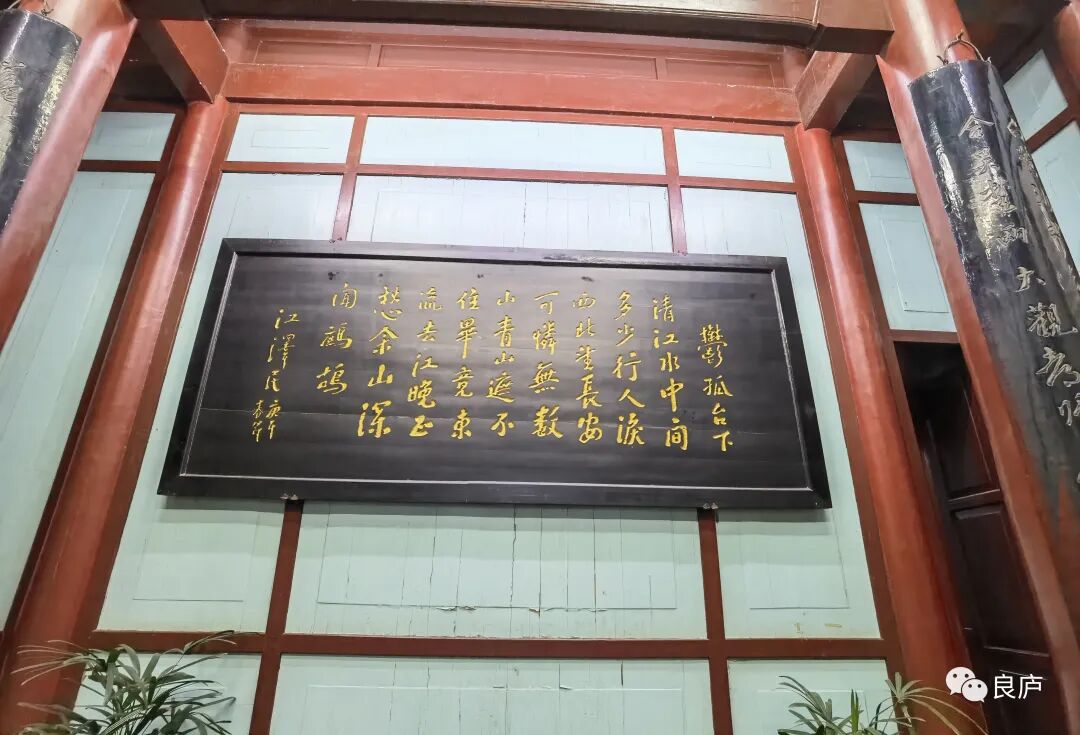 鬱孤台下
清江水中间
多少行人淚
西北望長安
可憐無數
山青山遮不
住畢竟東
流去江晚正
愁余山深
闻鷓鴣
江澤民
庚午
春节
大觀
良庐